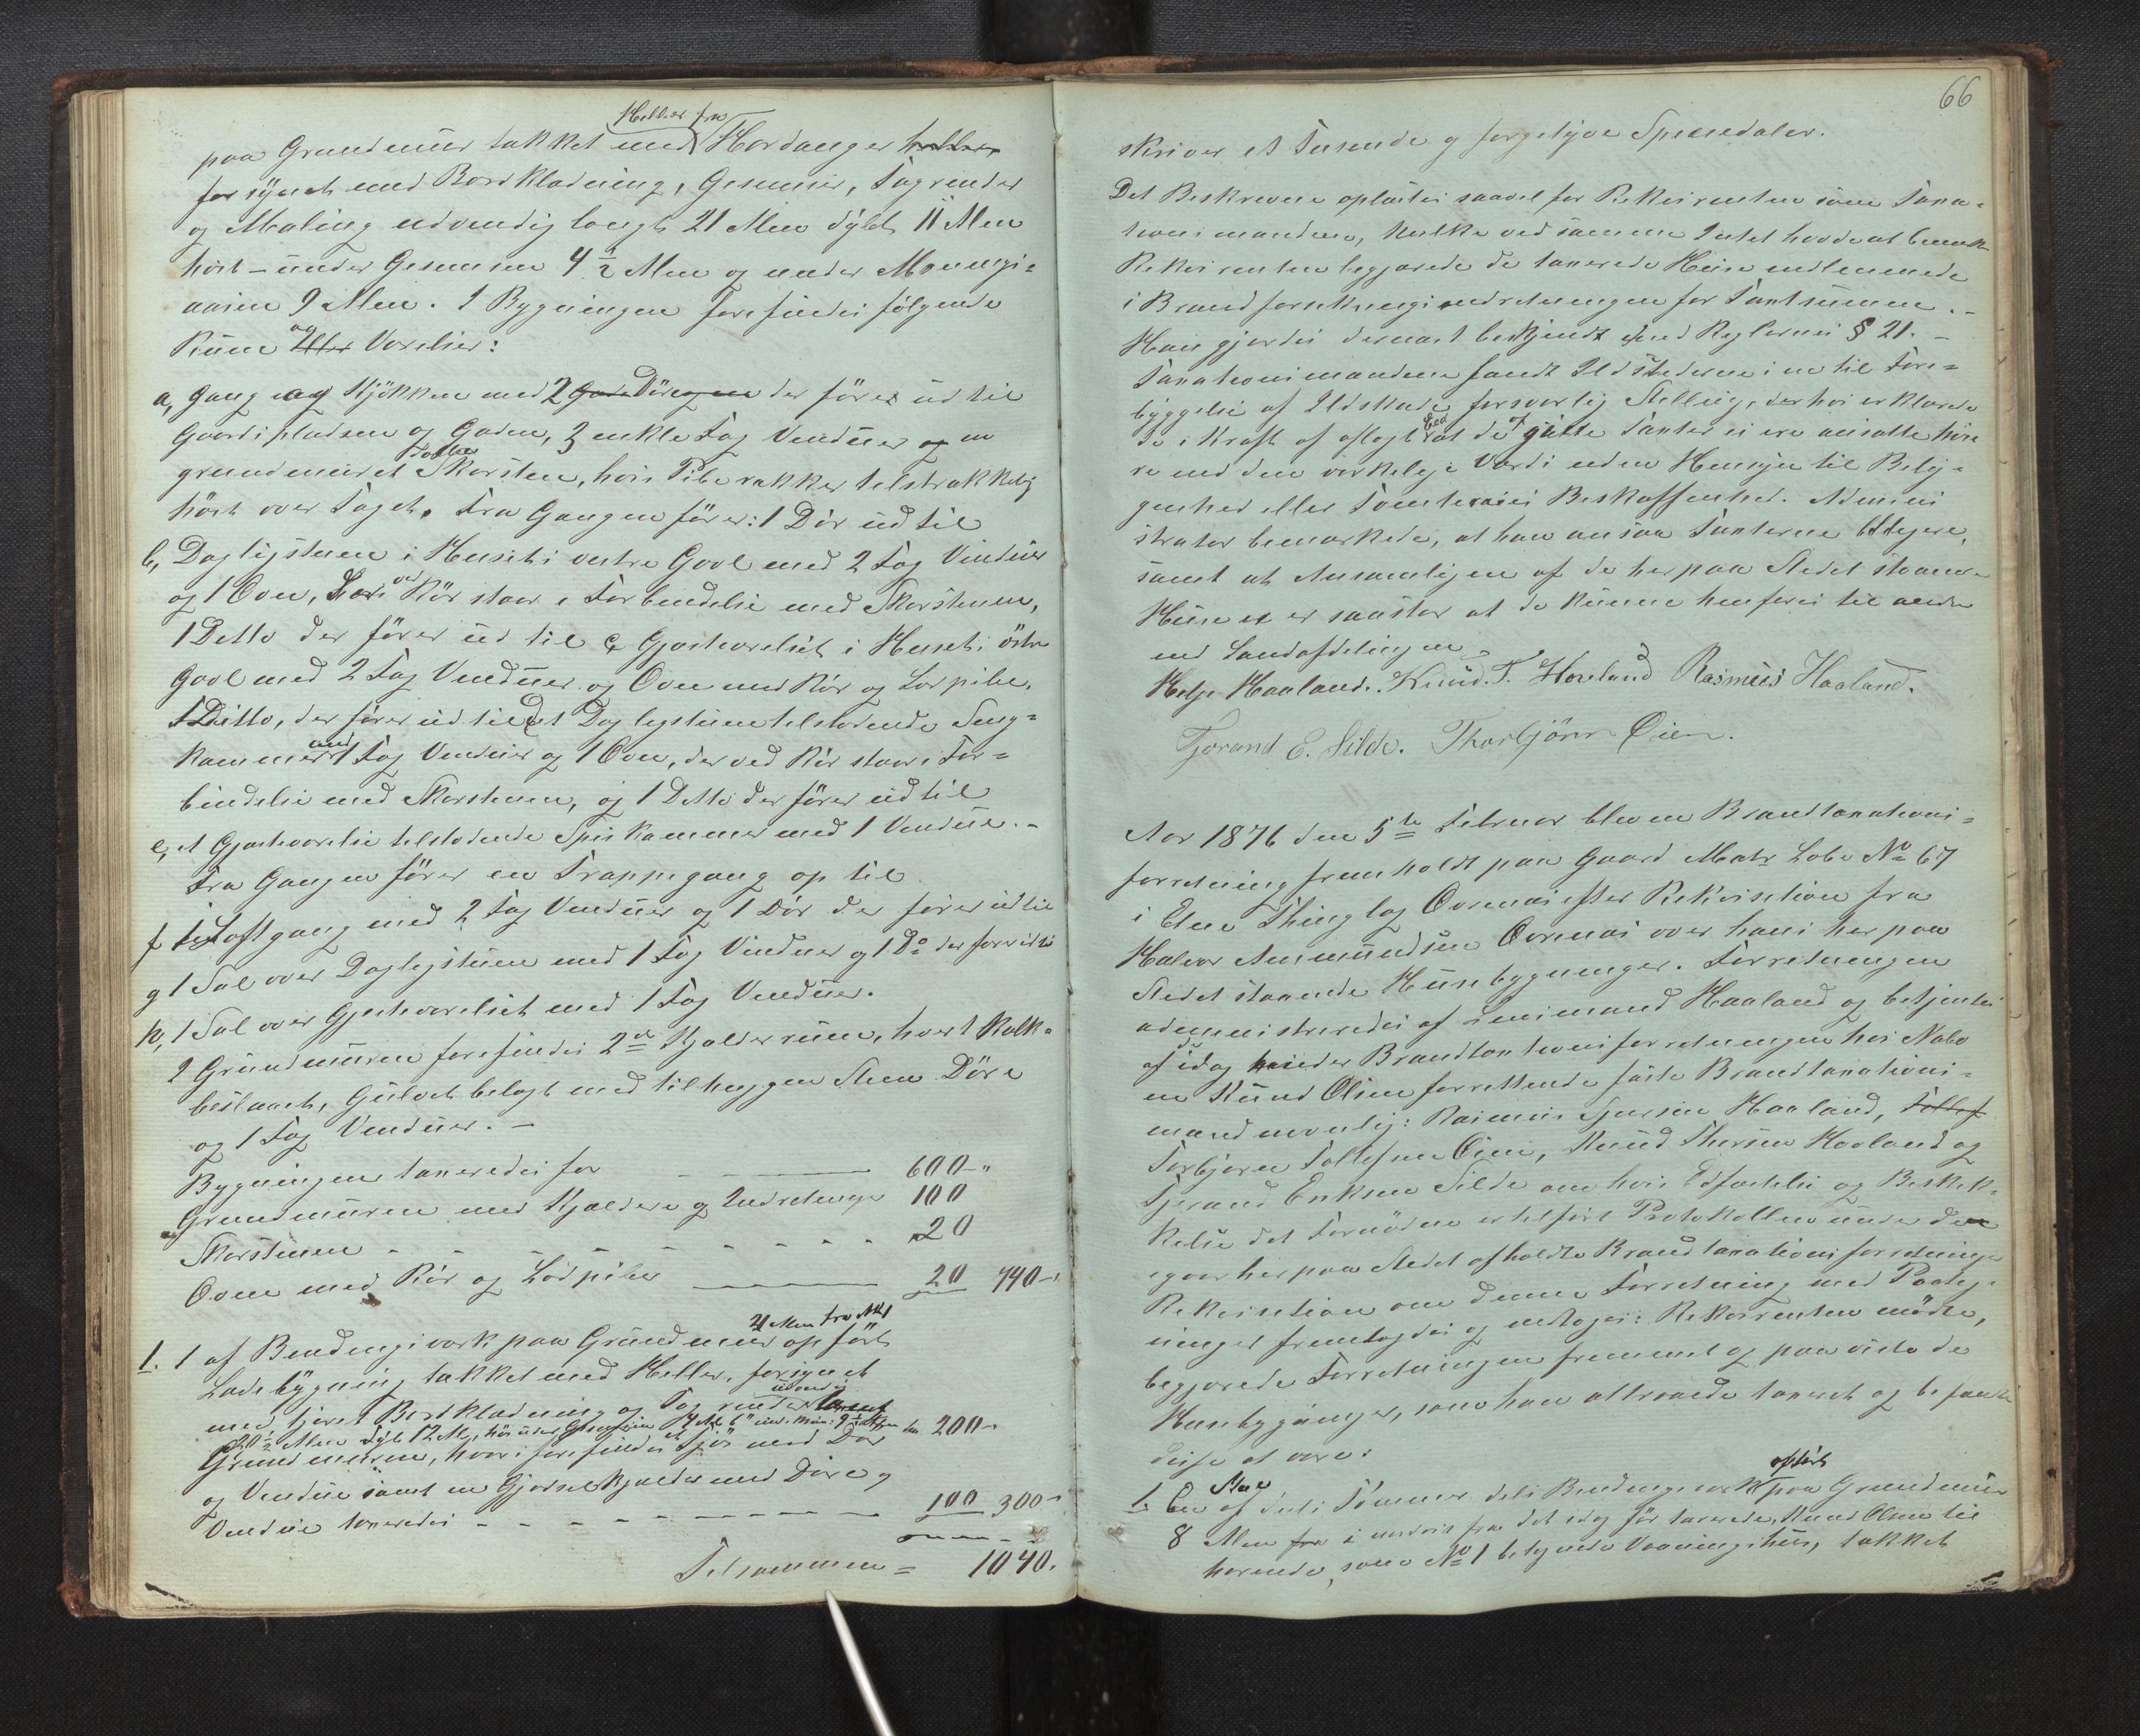 Heller fra
paa Grundmuur takket med Hardanger heller
forsynet med Bordklædning, Gesimser, Tagrender
og Maling udvendig langt 21 Alen dybt 11 Alen
høit under Gesimsen 4 1/2 Alen og under Mønings
aasen 9 Alen. I Bygningen forefindes følgende
Rum og eller Værelser:
a, Gang og Kjøkken med 2 Døre der fører ud til
Gaardspladsen og Gaden, 3 enkle Fag Vinduer og en
grundmuret Skorsten, hvis Pibe rækker tilstrækkelig
høit over Taget. Fra Gangen fører: 1 Dør ud til
b, Dagligstuen i Husets vestre Gavl med 2 Fag Vinduer
og 1 Ovn, ved Rør staar i Forbindelse med Skorstenen,
1 Ditto der fører ud til c Gjæsteværelset i Husets østre
Gavl med 2 Fag Vinduer og Ovn med Rør og Lødpibe,
1 Ditto, der fører ud til d et Dagligstuen tilstødende Seng-
kammer med 1 Fag Vinduer og 1 Ovn, der ved Rør staar i For-
bindelse med Skorstenen, og 1 Ditto der fører ud til
e, et Gjæsteværelse tilstødende Spiskammer med 1 Vindue.
Fra Gangen fører en Trappegang op til
f Loftgang med 2 Fag Vinduer og 1 Dør der fører ud til
g 1 Sal over Dagligstuen med 1 Fag Vinduer og 1 Do der fører ud til
h, 1 Sal over Gjesteværelset med 1 Fag Vinduer.
I Grundmuren forefindes 2de Kjælderrum, hvert kalk-
beslaaet, Gulvet belagt med tilhuggen Steen Døre
og 1 Fag Vinduer. -
Bygningen taxeredes for 600 "
Grundmuren med Kjældere og Indretninge 100
Skorstenen 20
Ovne med Rør og Lødpibe 20 740
4 Alen fra No 1
1. 1 af Bindingsværk paa Grundmuur opført
Ladebygning takket med Heller, forsynet
med tjæret Bordklædning og Tagrender udvendig
20 1/2 Alen dybt 12 Al, 200
Grundmuren, hvori forefindes Fjøs med Dør
og Vindue samt en Gjødselkjælder med Døre og
Vindue taxeredes 100 300
Tilsammen = 1040.
66
skriver et Tusende og førgetyve Speciedaler.
Det Beskrevne oplæstes saavel for Rekvirenten som Taxa-
tionsmændene, hvilke ved samme Intet havde at bemærke
Rekvirenten begjærede de taxerede Huse indlemmede
i Brandforsikringsindretningen for Taxtsummen. -
Han gjordes dernæst bekjendt med Reglernes § 21. -
Taxationsmændene fandt Ildstederne i en til Fore-
byggelse af Ildskade forsvarlig Stelling, derhos erklærede
de i Kraft af aflagt Eed at de afgivne Taxter ei ere ansatte høie
re end den virkelige Værdi uden Hensyn til Belig-
genhed eller Tomternes Beskaffenhed. Admini
strator bemærkede, at han ansaa Taxterne billigere,
samt at Ansamlingen af de her paa Stedet staaende
Huse er saa stor at de kunne henføres til anden
end Landafdelingen
Helje Haaland. Knud. T. Hoveland Rasmus Haaland.
Tjerand E. Silde. Thorbjörn Öien.
Aar 1876 den 5te Februar blev en Brandtaxations-
forretning fremholdt paa Gaard Matr Løbe No 67
i Etne Thinglag Øvrenæs efter Rekvisition fra
Halvor Ammundsen Øvrenæs over hans her paa
Stedet staaende Husebygninger. Forretningen
administreredes af Lensmand Haaland og betjentes
af de idag under Brandtaxtionsforretningen hos Nabo
en Knud Olsen forrettende faste Brandtaxations-
mænd nemlig: Rasmus Haaland, Tollef
Torbjørn Tollefsen Øien, Knud Thorsen Haaland og
Tjerand Eriksen Silde om hvis Edfæstelse og Beskik-
kelse det Fornødne er tilført Protokollen under den
igaar her paa Stedet afholdte Brandtaxationsforretninge
Rekvisition om denne Forretning med Paateg-
ninger fremlagdes og indtages: Rekvirenten mødte,
begjærede Forretningen fremmet og paaviste de
Husebygninger, som han attraaede taxeret og befandtes
disse at være:
1. En Stue af dels Tømmer dels Bindingsværk opført paa Grundmuur
8 Alen fra i nordvest fra det idag før taxerede, Knud Olsen til
hørende, som No 1 betegnede Vaaningshus, takket